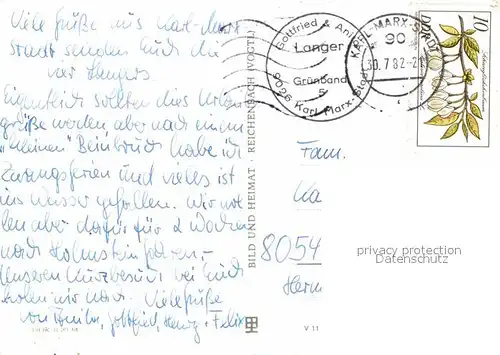 Viele Grüße aus Karl-Marx-
Stadt senden Euch die
vier Langers.
Eigentlich sollten dies Urlaubs
grüße werden aber nach einem
"kleinen" Beinbruch habe ich
Zwangsferien und vieles ist
ins Wasser gefallen. Wir wol
len aber dafür für 2 Wochen
nach Holmstein fahren.
Unseren Kurzbesuch bei Euch
holen wir nach. Viele Grüße
von Gottfried, Felix
BILD UND HEIMAT · REICHENBACH (VOGTL)
V 11
Gottfried & Anni
Langer
Grünband
5
9026 Karl-Marx-Stadt
KARL-MARX-STADT
90
30.7.82-21
10
DDR
Fam.
8054
privacy protection
Datenschutz